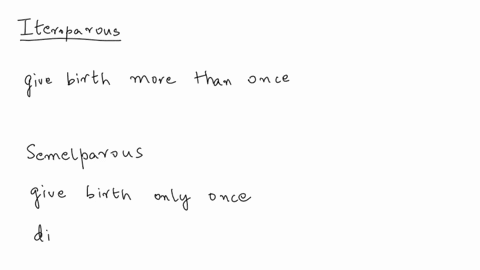 Iteroparous
give birth more than once
Semelparous
give birth only once
di